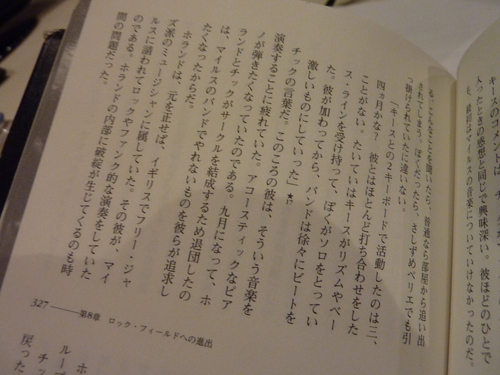 入ったときの感想と同じで興味深い。彼ほどのひとで
も、最初はマイルスの音楽についていけなかったのだ。
る。こんなことを聞いたら、普通なら部屋から追い出
されていよう。ぼくだったら、さしずめペリエでも引
っ掛けられていたに違いない。
「キースとの2キーボードで活動したのは三、
四ヵ月かな? 彼とはほとんど打ち合わせをした
ことがない。たいていはキースがリズムやベー
ス・ラインを受け持って、ぼくがソロをとってい
た。彼が加わってから、バンドは徐々にビートを
激しいものにしていった」
チックの言葉だ。このころの彼は、そういう音楽を
演奏することに疲れていた。アコースティックなピア
ノが弾きたくなっていたのである。九月になって、ホ
ランドとチックがサークルを結成するため退団したの
は、マイルスのバンドでやれないものを彼らが追求し
たくなったからだ。
ホランドは、元を正せば、イギリスでフリー・ジャ
ズ派のミュージシャンに属していた。その彼が、マイ
ルスに請われてロックやファンク的な演奏をしていた
のである。ホランドの内部に破綻が生じてくるのも時
間の問題だった。
327 第8章 ロック・フィールドへの進出
ホ
ルー
チッ
戻った